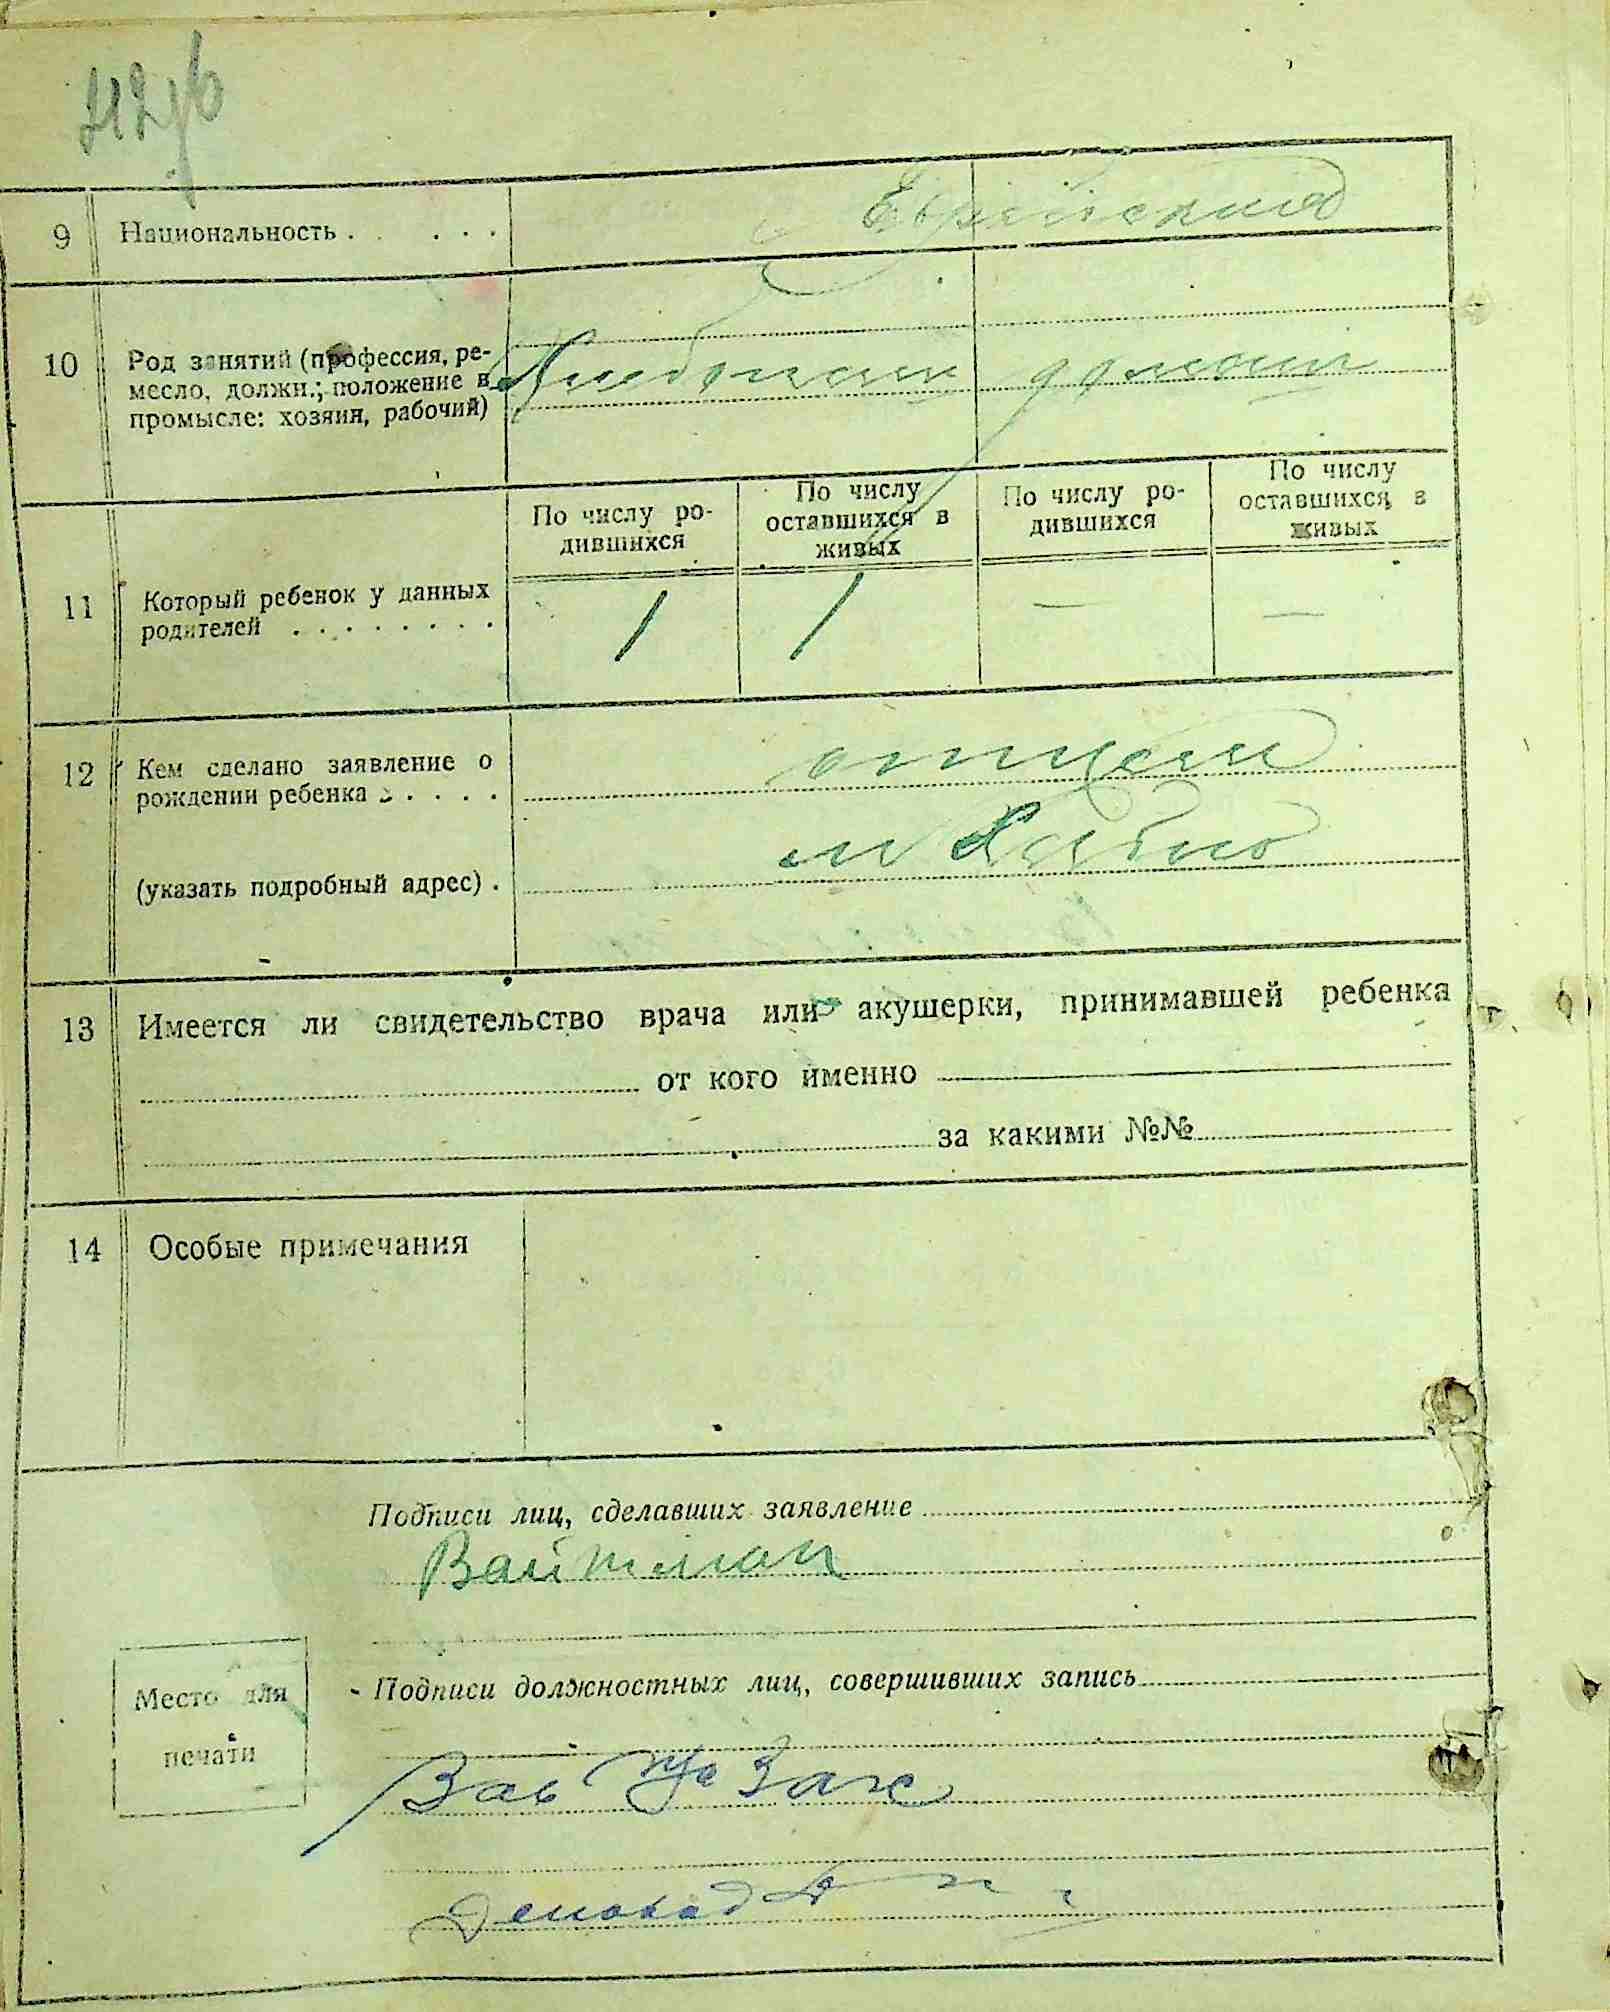 9 Национальность . . . . . Еврейский
10 Род занятий (профессия, ре-
месло, должн.; положение в
промысле: хозяин, рабочий)
По числу ро-
дившихся
По числу
оставшихся в
живых
По числу ро-
дившихся
По числу
оставшихся в
живых
11 Который ребенок у данных
родителей . . . . . . . .
1 1 — —
12 Кем сделано заявление о
рождении ребенка . . . . . отцем
(указать подробный адрес) . м
13 Имеется ли свидетельство врача или акушерки, принимавшей ребенка
от кого именно
за какими №№
14 Особые примечания
Подписи лиц, сделавших заявление
Вайтман
Место для
печати
Подписи должностных лиц, совершивших запись
Зав Загс